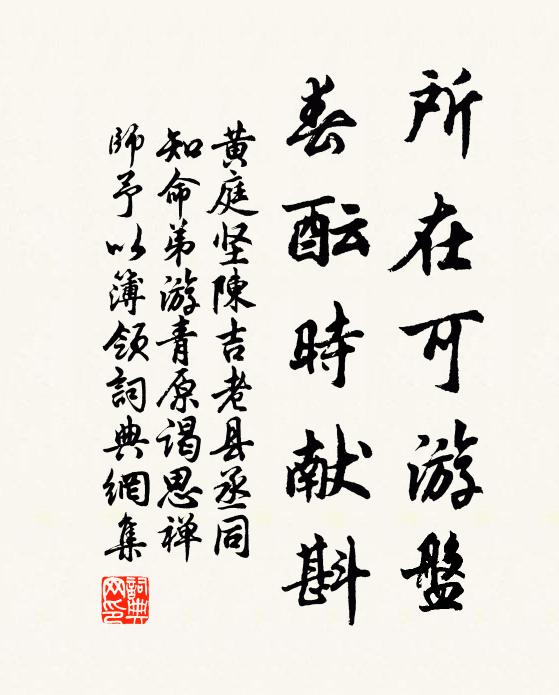 所在可游盤
春酝時献斟
黄庭坚陳吉老县丞同
知命弟游青原谒思禅
師予以簿领詞典網集
詞典网印